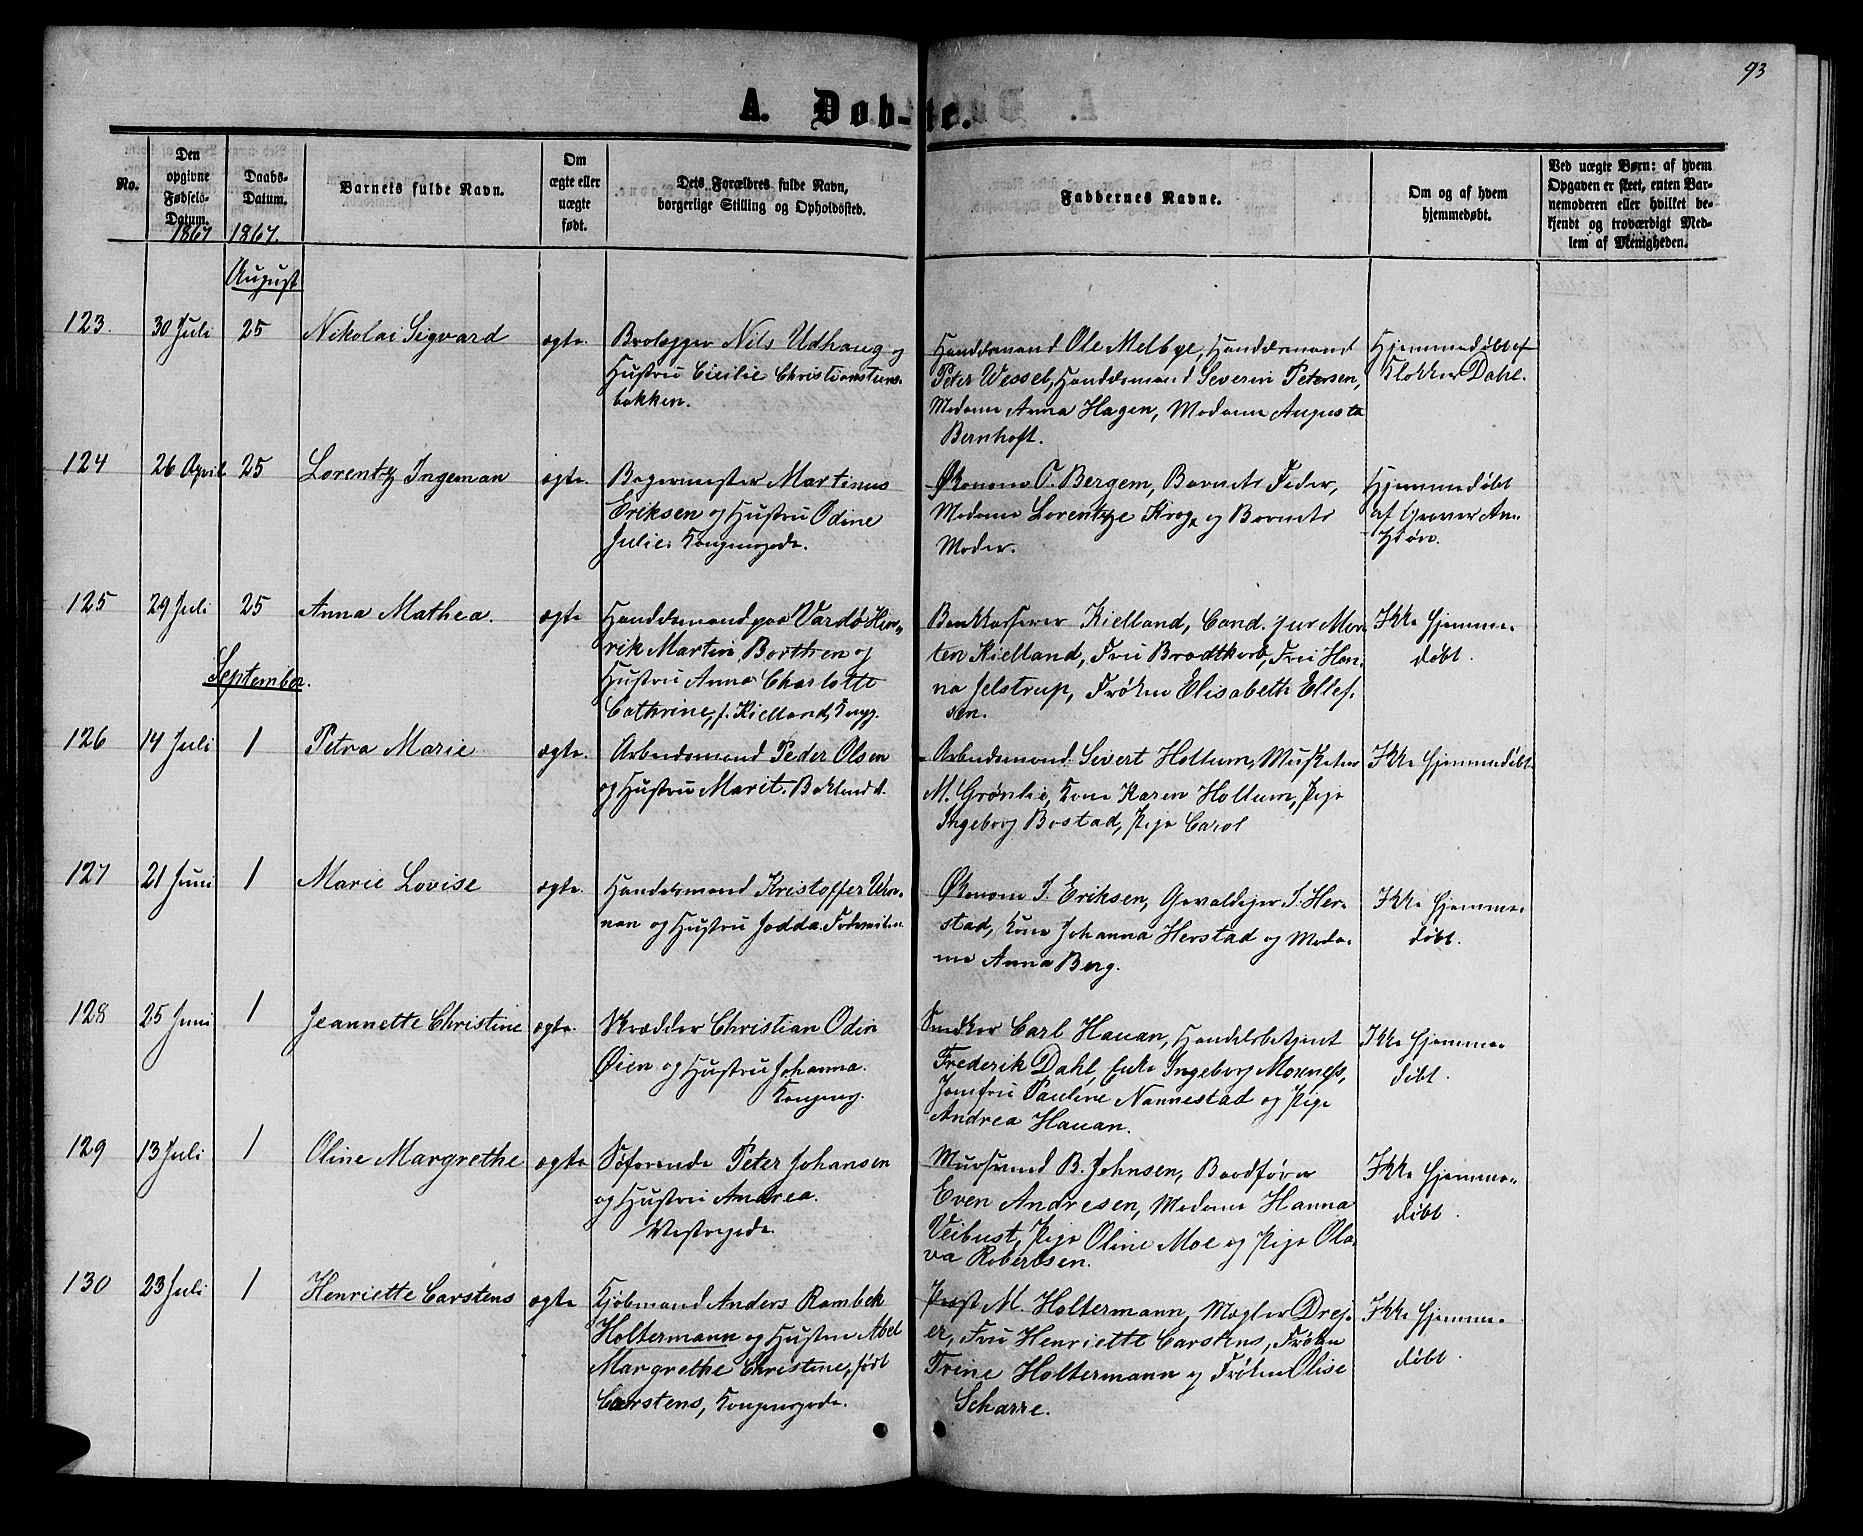 93
A. Døb-te.
No.
Den opgivne Fødsels-Datum.
Daabs-Datum.
Barnets fulde Navn.
Om ægte eller uægte født.
Dets Forældres fulde Navn, borgerlige Stilling og Opholdssted.
Faddernes Navne.
Om og af hvem hjemmedøbt.
Ved uægte Børn: af hvem Opgaven er skeet, enten Barnemoderen eller hvilket bekjendt og troværdigt Medlem af Menigheden.
1867 1867.
August
123. 30 Juli 25 Nikolai Sigvard ægte.
Brolægger Nils Udhaug og
Hustru Cicilie Christianstens-
bakken.
Handelsmand Ole Melbye, Handelsmand
Peter Wessel, Handelsmand Severin Petersen,
Madame Anna Hagen, Madame Augusta
Bernhoft.
Hjemmedøbt af
Klokker Dahl.
124 26 April 25 Lorentz Ingeman ægte.
Bagermester Martinus
Eriksen og Hustru Odine
Julie. Kongensgade.
Økonom O. Bergem, Barnets Fader,
Madame Lorentze Krog, og Barnets
Moder.
Hjemmedøbt
af
125 29 Juli 25 Anna Mathea. ægte
Handelsmand paa Vardø Hen-
rik Martin Borthen og
Hustru Anna Charlotte
Cathrine, f. Kielland, Kngg.
Bankkasserer Kielland, Cand. jur Mor-
ten Kielland, Fru Brodtkorb, Fru Han-
na Jelstrup, Frøken Elisabeth Ellef-
sen.
Ikke hjemme-
døbt.
September.
126 14 Juli 1 Petra Marie ægte.
Arbeidsmand Peder Olsen
og Hustru Marit. Baklandet.
Arbeidsmand Sivert Holtum, Musketer
M. Grønlie, Kone Karen Holtum, Pige
Ingeborg Bostad, Pige Carol
Ikke hjemmedøbt.
127 21 Juni 1 Marie Lovise ægte.
Handelsmand Kristoffer
og Hustru Jodda.
Økonom J. Eriksen, Gevaldiger J. Her-
stad, Kone Johanna Herstad og Mada-
me Anna Berg.
Ikke hjemme-
døbt.
128 25 Juni 1 Jeannette Christine ægte.
Skrædder Christian Odin
Øien og Hustru Johanna.
Kongensg.
Snedker Carl Hauan, Handelsbetjent
Frederik Dahl, Enke Ingeborg
Jomfru Pauline Nannestad og Pige
Andrea Hauan.
Ikke hjemme-
døbt.
129 13 Juli 1 Oline Margrethe ægte
Søfarende Peter Johansen
og Hustru Andrea.
Vestregade.
Mursvend B. Johnsen, Baadfører
Even Andresen, Madame Hanna
Veibust, Pige Oline Moe og Pige Ola-
va Robertsen.
Ikke hjemme-
døbt.
130 23 Juli 1 Henriette Carstens ægte
Kjøbmand Anders Rambek
Holtermann og Hustru Abel
Margrethe Christine, født
Carstens, Kongensgade.
M. Holtermann, Mægler Drej-
er, Fru Henriette Carstens, Frøken
Trine Holtermann og Frøken Olise
Scharre.
Ikke hjemme-
døbt.